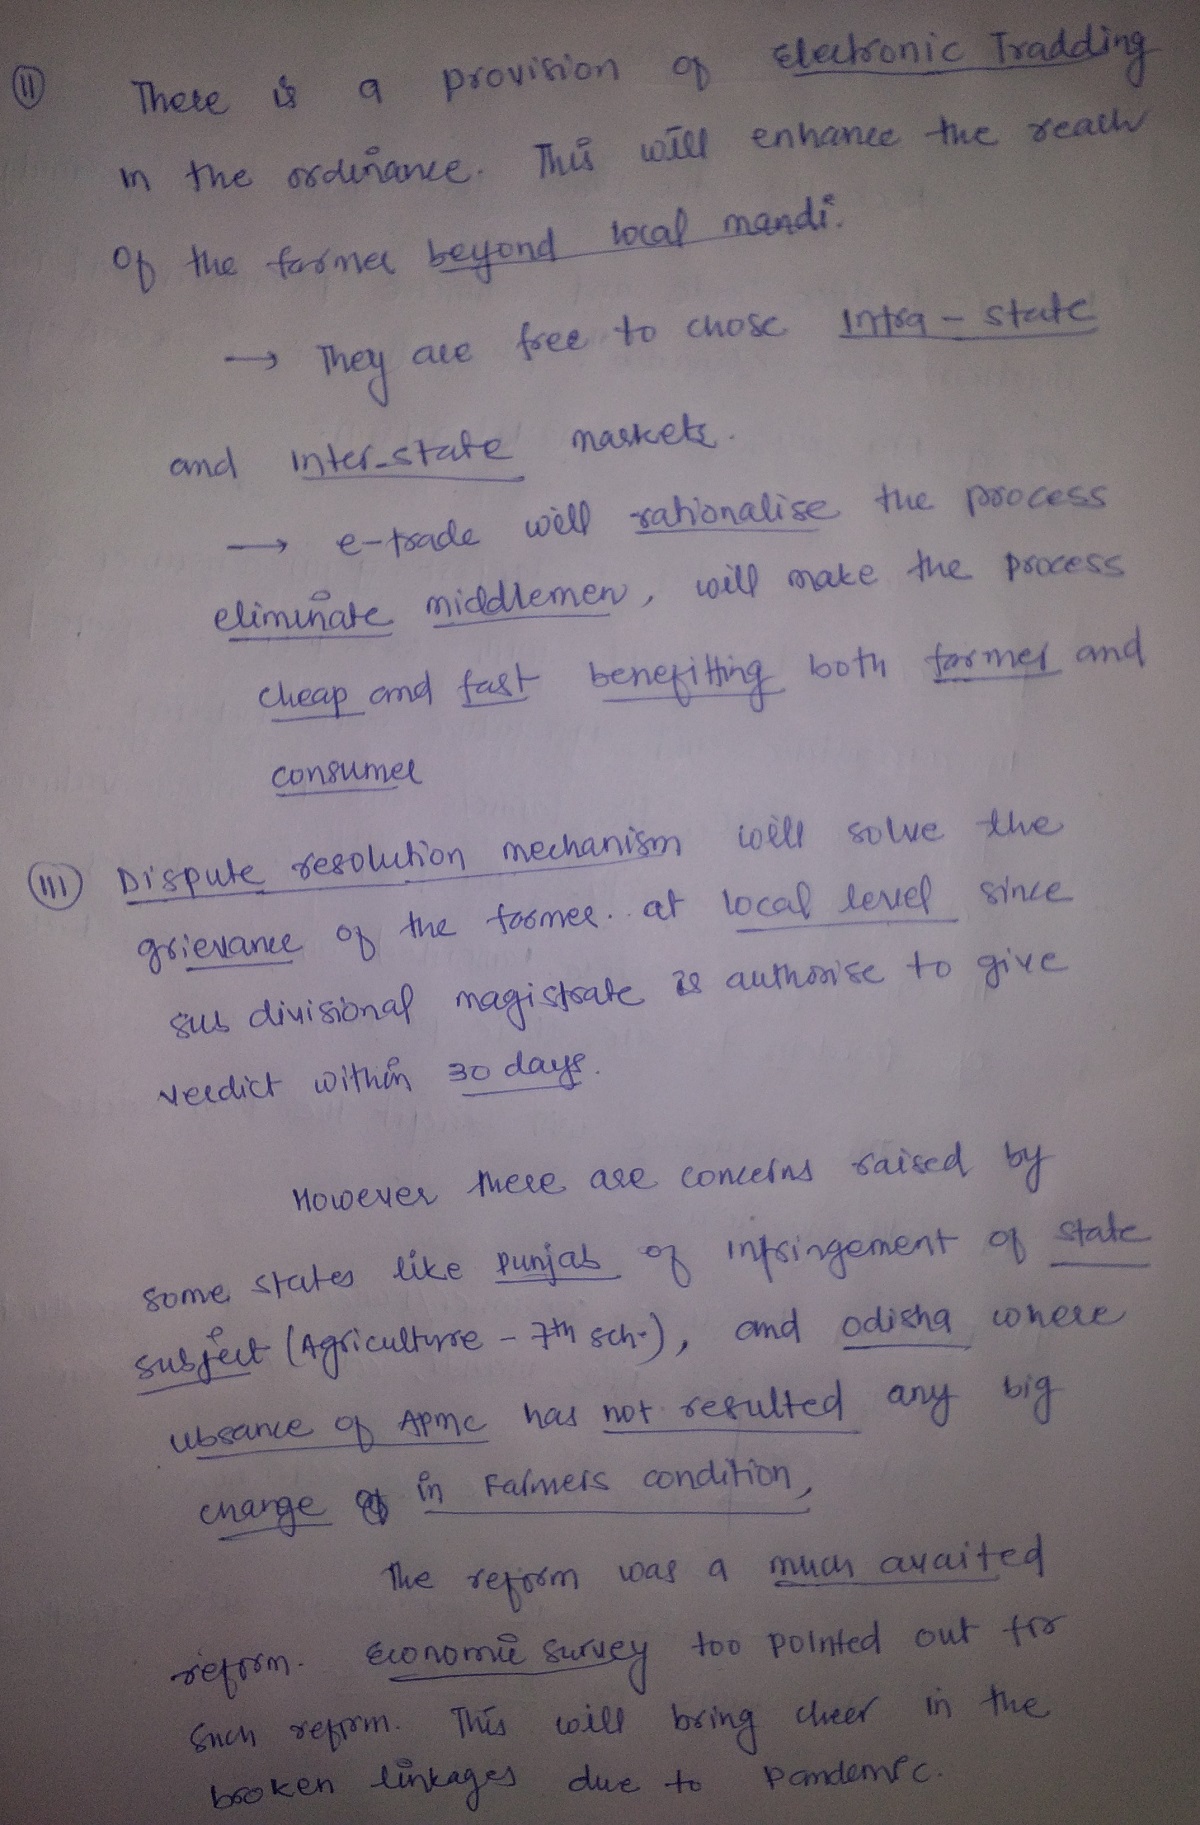 (II) There is a provision of Electronic Tradding
in the ordinance. This will enhance the reach
of the farmer beyond local mandi.
→ They are free to chose Intra - state
and Inter-state markets.
→ e-trade will rationalise the process
eliminate middlemen, will make the process
cheap and fast benefitting both farmer and
consumer
(III) Dispute resolution mechanism will solve the
grievance of the farmer. at local level since
sub divisional magistrate is authorise to give
verdict within 30 days.
However there are concerns raised by
some states like Punjab of infringement of state
subject (Agriculture - 7th sch.), and odisha where
absance of APMC has not resulted any big
change in Farmers condition,
The reform was a much awaited
reform. Economic survey too pointed out for
such reform. This will bring cheer in the
broken linkages due to pandemic.